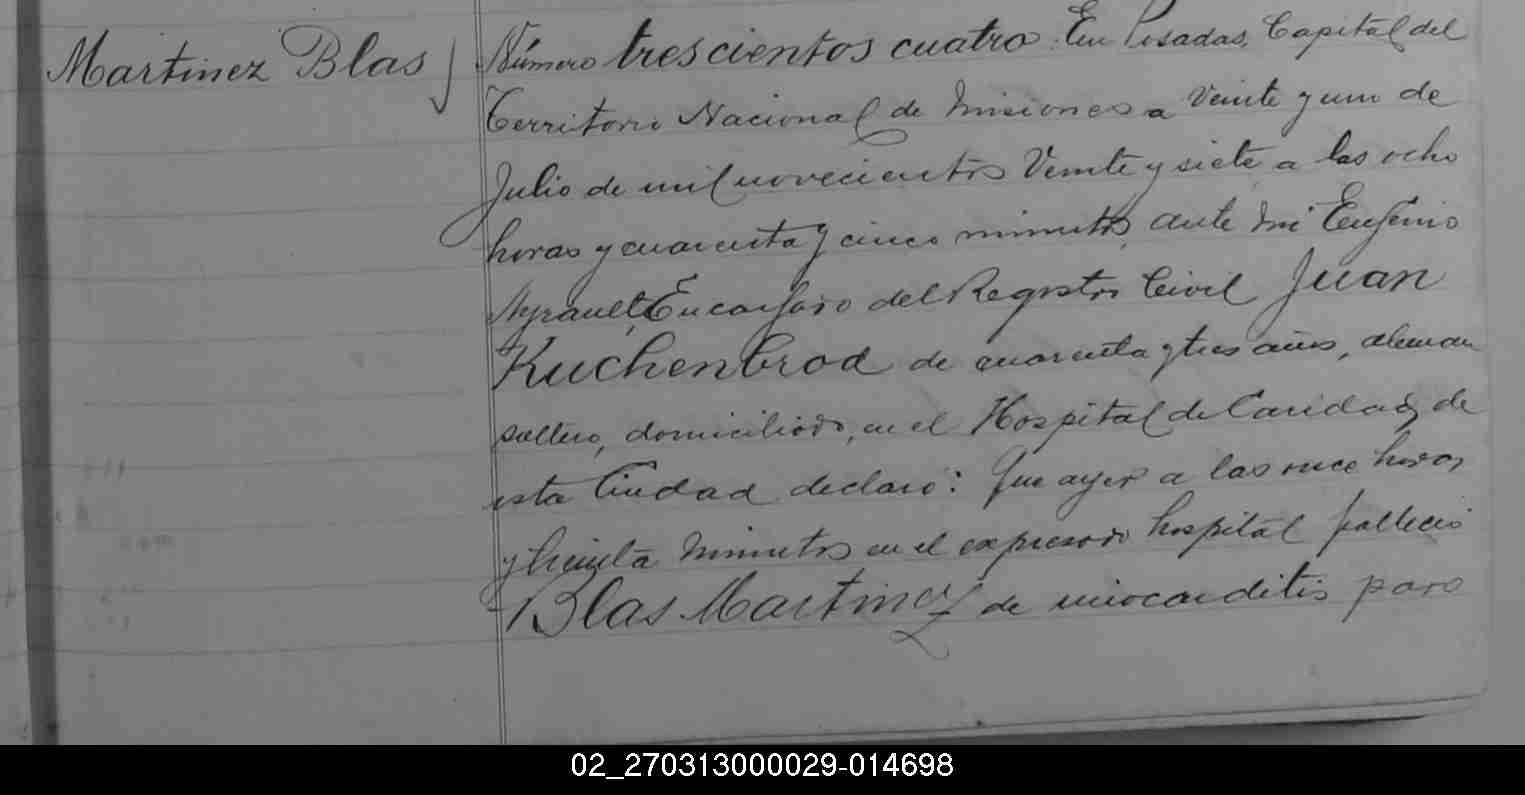 Martinez Blas
Número trescientos cuatro. En Posadas, Capital del
Territorio Nacional de Misiones a veinte y uno de
Julio de mil novecientos veinte y siete a las ocho
horas y cuarenta y cinco minutos, ante mi Eugenio
Ayrault, Encargado del Registro Civil Juan
Kuchenbrod de cuarenta y tres años, aleman
soltero, domiciliado, en el Hospital de Caridad, de
esta Ciudad declaró: Que ayer a las once horas
y treinta minutos en el expresado hospital falleció
Blas Martinez de miocarditis paro
02_270313000029-014698